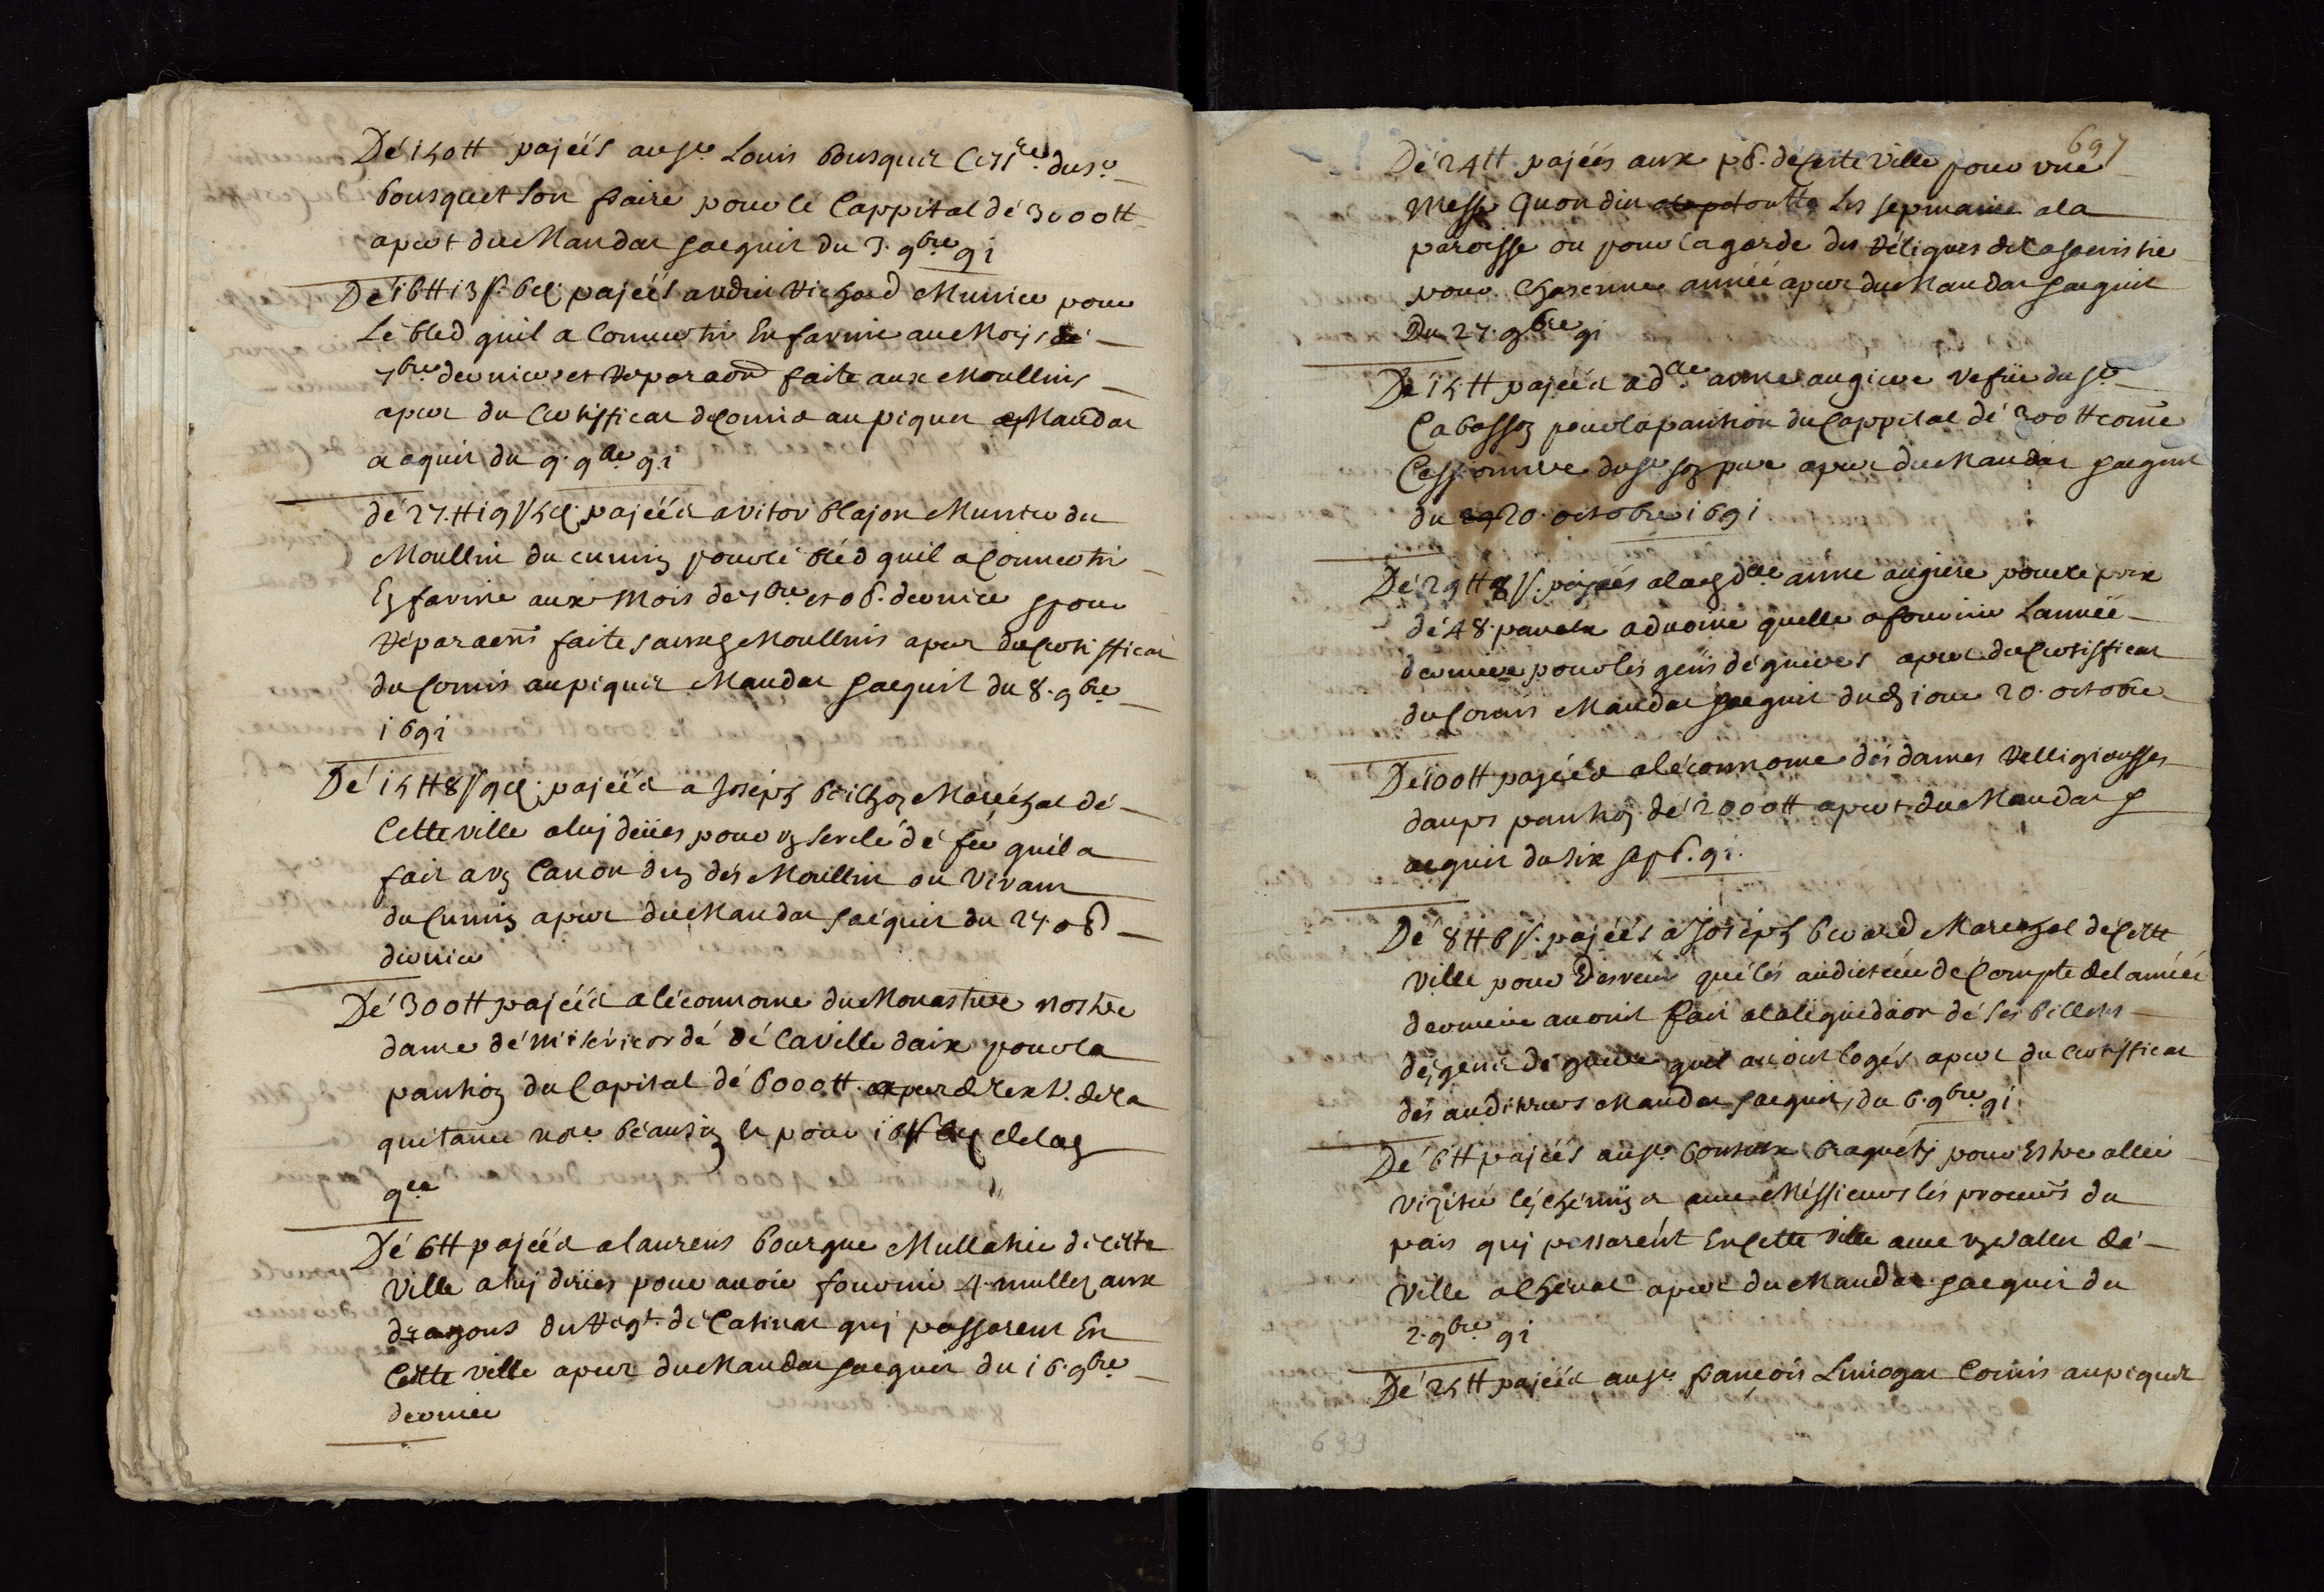 Dé 150tt pajéés au sr Louis bousquet Cessre du sr
bousquet son fraire pour lé Cappital dé 3000tt
apert du Mandat Sacquit du 3. 9bre 91
Dé 16tt 13s. 6d. pajéés andrei Richard Munier pour
Lé bled quil a Converti En farine au Mois dé
7bre dernier et reparaon faite aux Moullins
aper du Certifficat du Comis au piquet et Mandat
acquit du 9. 9bre 91
dé 27.tt 19s 5d. pajééd a vitor blajon Munier du
Moullin du cumin pour lé bléd quil a Converti
En farine aux Mois de 7bre et 8b. dernier et pour
réparaens faites aux Moullins aper du Certifficat
du Comis au piquet Mandat Sacquit du 8. 9bre
1691
Dé 15tt 8s 9d. pajééd a Joseph Maréchal dé
Cette ville a luj deües pour un sercle dé fer quil a
fait a un Canon dun dés Moullin ou Vivant
du Cumin aper du Mandat Sacquit du 24. 8b
dernier
Dé 300tt pajééd a léconnome du Monastere nostre
dame dé Miséricordé dé la Ville daix pour la
pantion du Capital dé 6000tt. aper dé lext. dela
quitance nore béausin et pour 16s dela
qce
Dé 6tt pajééd a laurens bourgue Mullatier dé cette
Ville a luj deües pour avoir fourni 4 mullez aux
dragons du Regt. dé Catinat quj passarent En
Cette ville aper du Mandat Sacquit du 16. 9bre
dernier
697
Dé 24tt pajéés aux pb. dé Cette Ville pour une
Messe Quondin toutte les sepmaine a la
paroisse ou pour la garde des réliques dela sacristie
pour Chacunne année aper du Mandat Sacquit
Du 27. 9bre 91
De 15tt pajééd a dlle anne augiere Vefüe du sr
Cabasson pour la pantion du Cappital dé 300tt come
Cessionnere du sr son pere aper du Mandat Sacquit
du 20. octobre 1691
Dé 29tt 8s. pajéés a lad dlle anne augiere pour le prix
dé 48. panaux advoine quelle a fournie Lannée
derniere pour les gens dé guerres aper du Certifficat
du Comis Mandat Sacquit dud jour 20. octobre
De 100tt pajééd a léconnome dés dames Relligieusses
daups pantion dé 2000tt apert du Mandat S
acquit du six sepb. 91.
Dé 8tt 6s. pajéés a Joseph berard Marechal dé Cette
Ville pour Derreur qué lés auditeur de Compte de lannée
derniere avoint fait a la liquidaon dé ses billets
dé gens dé guerre quil avoint logés aper du Certifficat
dés auditeurs Mandat Sacquit du 6. 9bre 91
Dé 6tt pajéés au sr bontoux braquéty pour Estre aller
Viziter lés chémins avec Messieurs lés procurs du
pais quj passarént En Cette Ville avec un Valler dé
Ville a Chéval aper du Mandat Sacquit du
2. 9bre 91
Dé 25tt pajééd au sr françois Limogar Comis au piquet
699